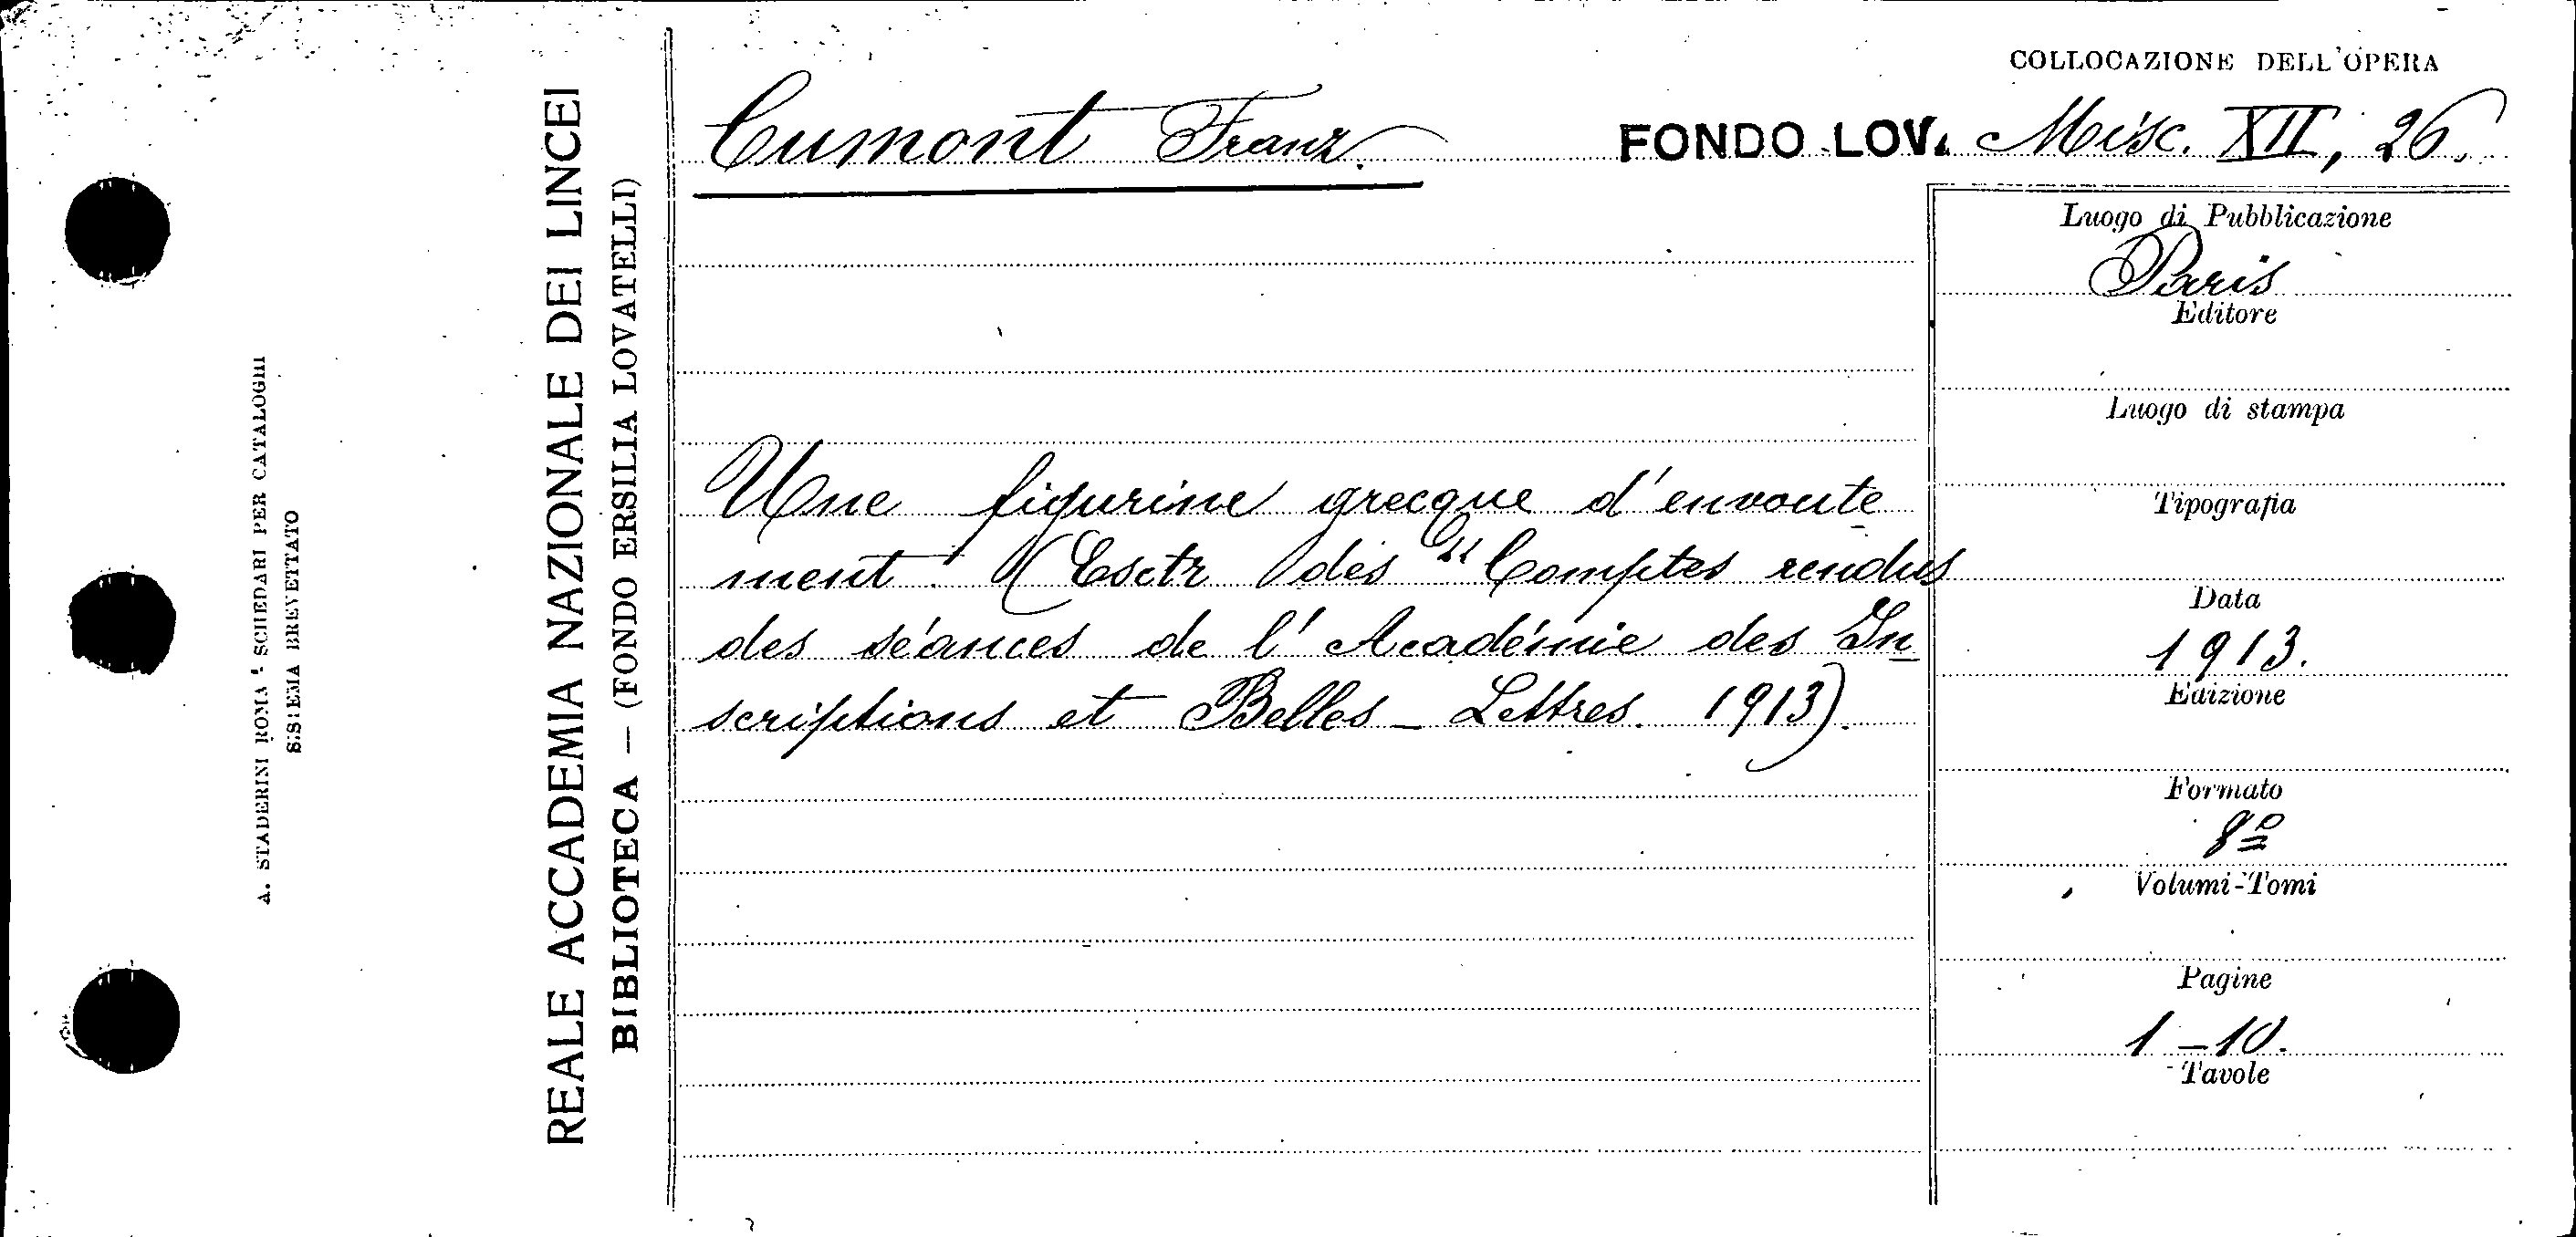 COLLOCAZIONE DELL'OPERA
Cumont Franz. FONDO LOV. Misc. XII, 26.
Une figurine grecque d'envoute
ment. (Esctr des "Comptes rendus
des séances de l'Académie des In
scriptions et Belles-Lettres. 1913).
Luogo di Pubblicazione
Paris
Editore
Luogo di stampa
Tipografia
Data
1913.
Edizione
Formato
8º
Volumi-Tomi
Pagine
1-10.
Tavole
REALE ACCADEMIA NAZIONALE DEI LINCEI
BIBLIOTECA — (FONDO ERSILIA LOVATELLI)
A. STADERINI ROMA " SCHEDARI PER CATALOGHI
SISTEMA BREVETTATO